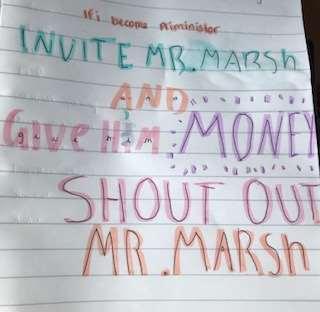 If i become priminister
INVITE MR.MARSH
AND
GIVE HIM MONEY
SHOUT OUT
MR.MARSH